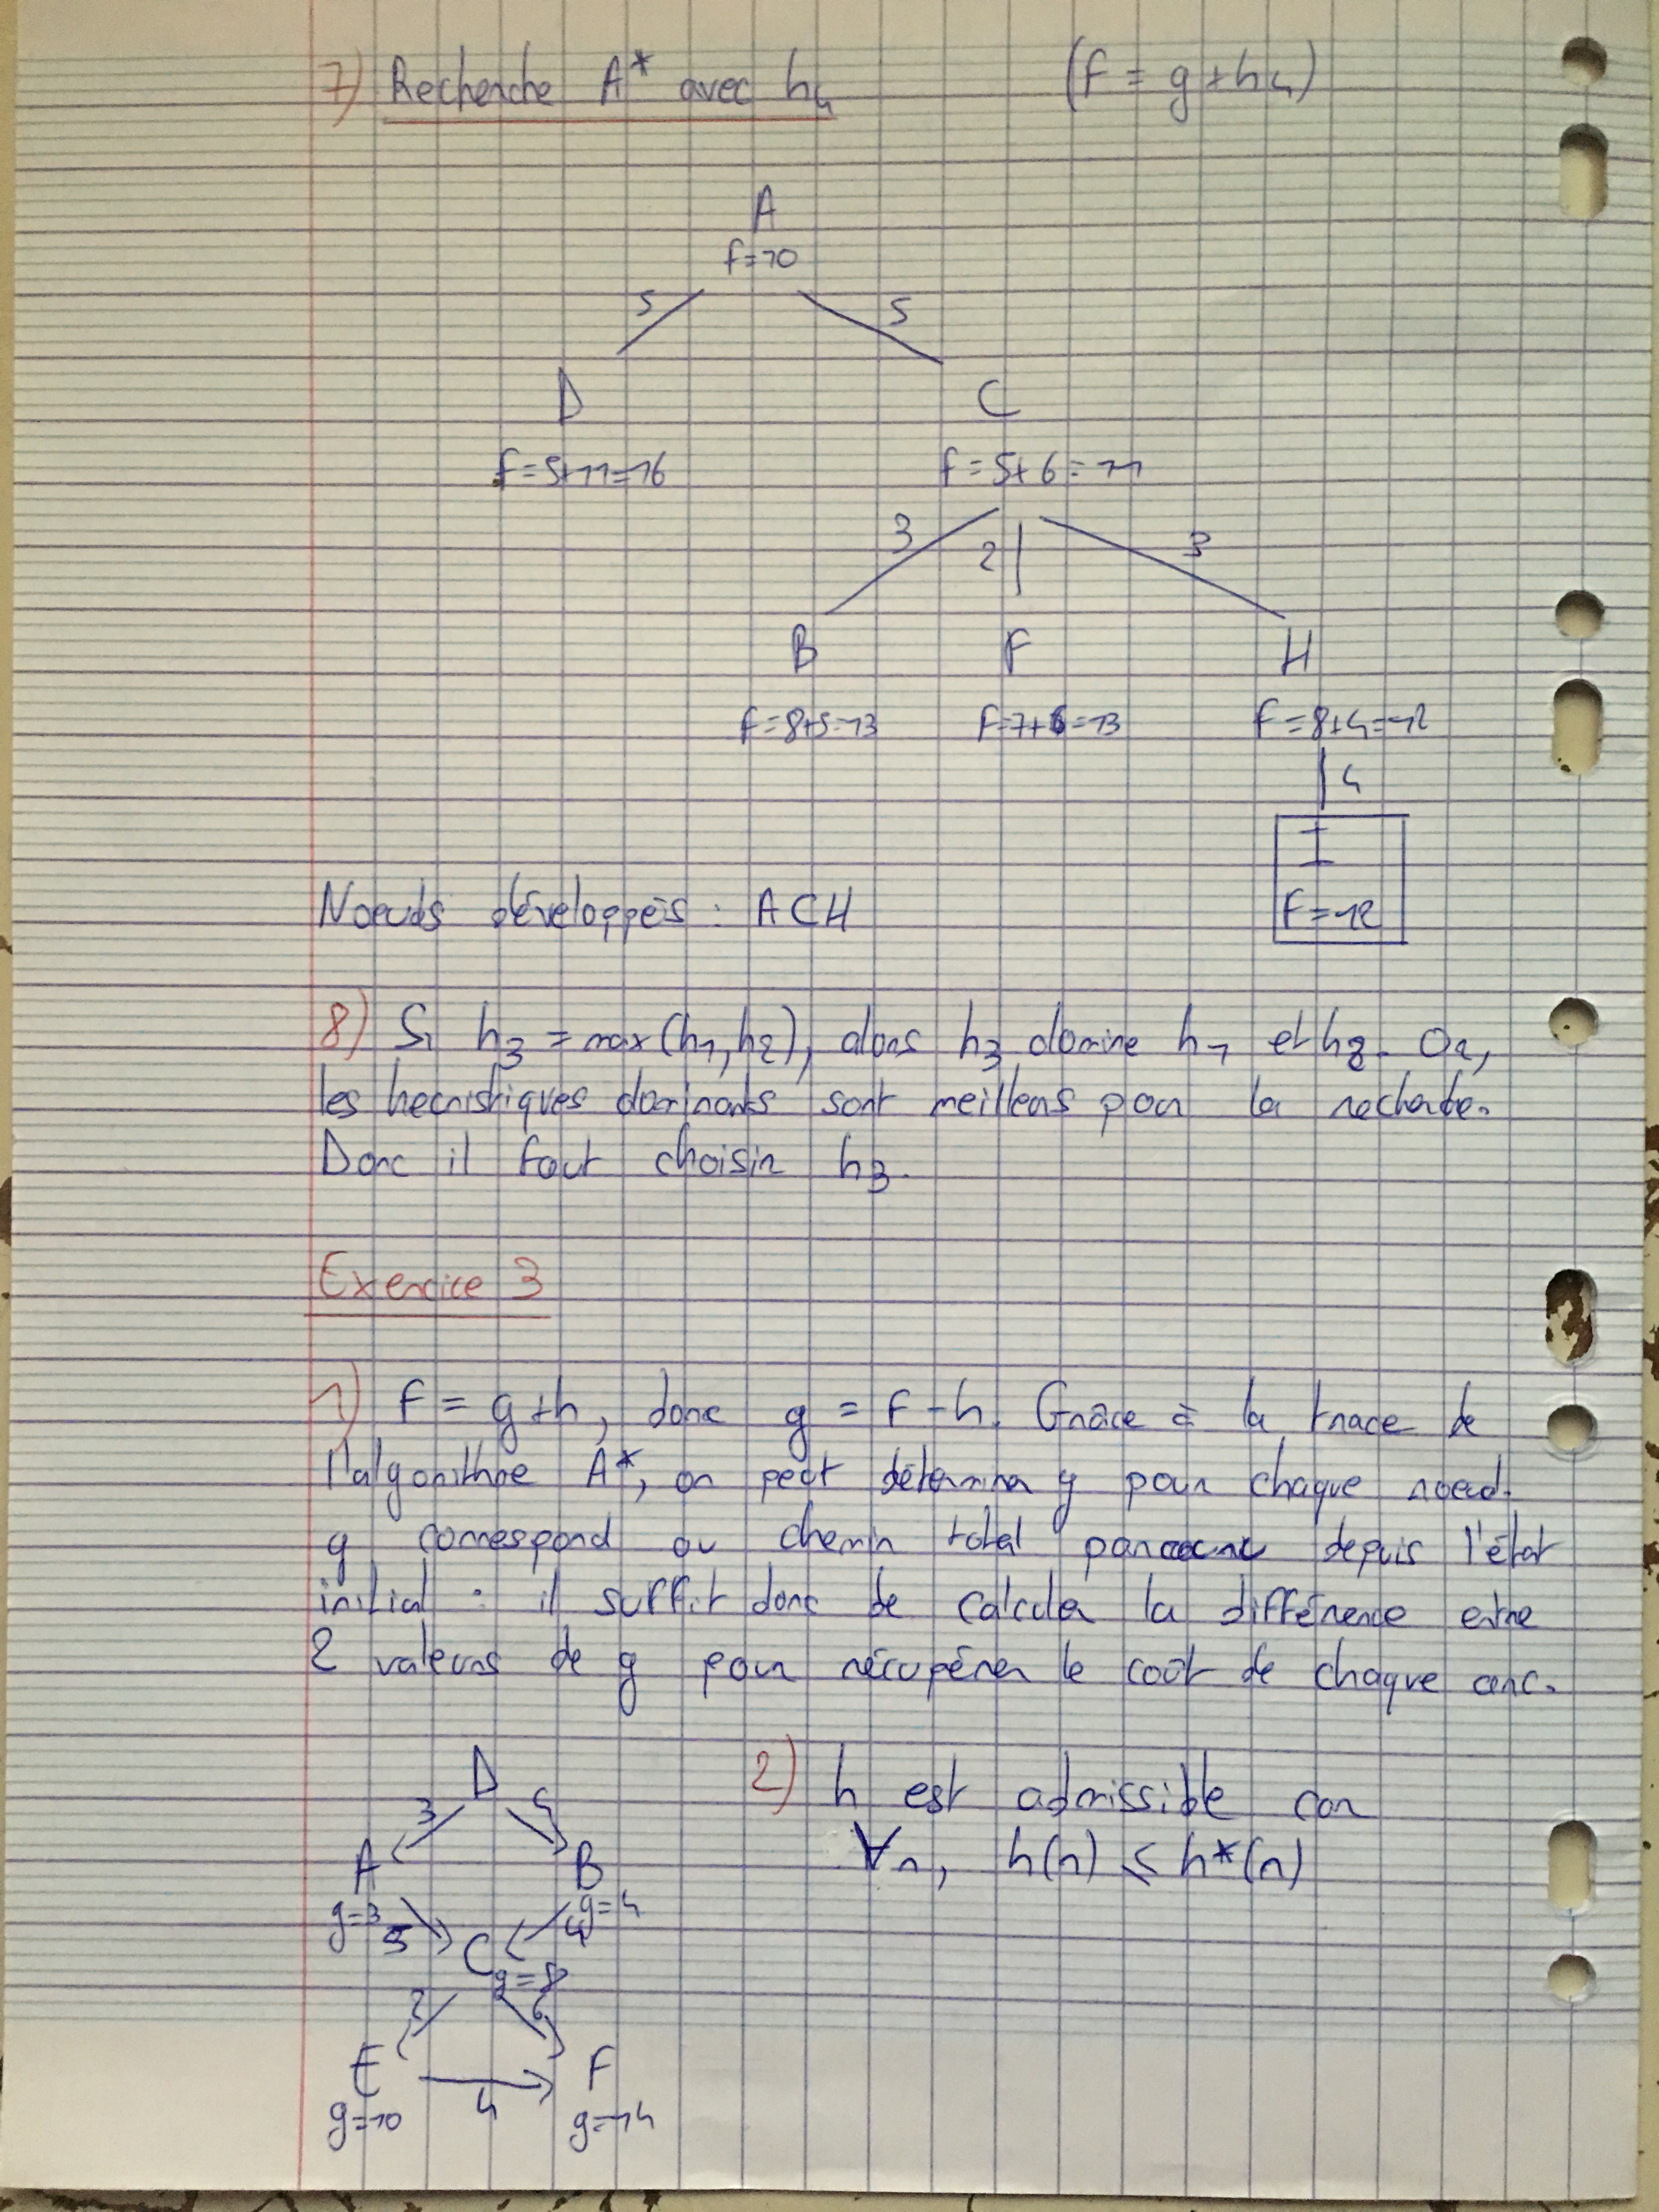 7) Recherche A* avec h4 (f = g + h4)
A
f=10
5 5
D C
f=5+11=16 f=5+6=11
3 2 3
B F H
f=8+5=13 f=7+6=13 f=8+4=12
4
I
Noeuds développés : ACH f=12
8) Si h3 = max(h1, h2), alors h3 domine h1 et h2. Or,
les heuristiques dominants sont meilleurs pour la recherche.
Donc il faut choisir h3.
Exercice 3
1) f = g+h, donc g = f-h. Grâce à la trace de
l'algorithme A*, on peut déterminer g pour chaque noeud.
g correspond au chemin total parcouru depuis l'état
initial : il suffit donc de calculer la différence entre
2 valeurs de g pour récupérer le coût de chaque arc.
D
3 4
A B
g=3 g=4
5 4
C
g=8
2 6
E F
4
g=10 g=14
2) h est admissible car
∀n, h(n) ≤ h*(n)